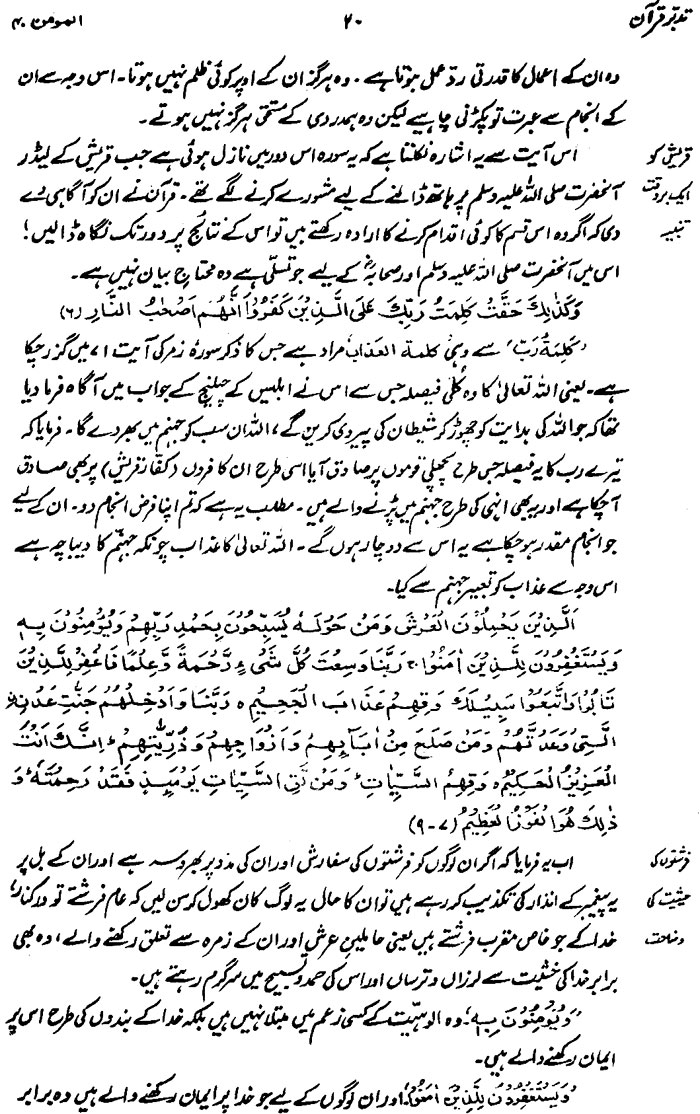 تدبرِ قرآن ۲۰ المومن ۴۰
وہ ان کے اعمال کا قدرتی ردِّ عمل ہوتا ہے۔ وہ ہرگز ان کے اوپر کوئی ظلم نہیں ہوتا۔ اس وجہ سے ان
کے انجام سے عبرت تو پکڑنی چاہیے لیکن وہ ہمدردی کے مستحق ہرگز نہیں ہوتے۔
قریش کو اس آیت سے یہ اشارہ نکلتا ہے کہ یہ سورہ اس دور میں نازل ہوئی ہے جب قریش کے لیڈر
ایک بروقت آنحضرت صلی اللہ علیہ وسلم پر ہاتھ ڈالنے کے لیے مشورے کرنے لگے تھے۔ قرآن نے ان کو آگاہی دے
تنبیہ دی کہ اگر وہ اس قسم کا کوئی اقدام کرنے کا ارادہ رکھتے ہیں تو اس کے نتائج پر دور تک نگاہ ڈالیں!
اس میں آنحضرت صلی اللہ علیہ وسلم اور صحابہؓ کے لیے جو تسلی ہے وہ محتاجِ بیان نہیں ہے۔
وَكَذٰلِكَ حَقَّتْ كَلِمَتُ رَبِّكَ عَلَى الَّذِيْنَ كَفَرُوْٓا اَنَّهُمْ اَصْحٰبُ النَّارِ (۶)
’كَلِمَةُ رَبّ‘ سے وہی کلمة العذاب مراد ہے جس کا ذکر سورۂ زمر کی آیت ۷۱ میں گزر چکا
ہے۔ یعنی اللہ تعالیٰ کا وہ کُلّی فیصلہ جس سے اس نے ابلیس کے چیلنج کے جواب میں آگاہ فرما دیا
تھا کہ جو اللہ کی ہدایت کو چھوڑ کر شیطان کی پیروی کریں گے، اللہ ان سب کو جہنم میں بھر دے گا۔ فرمایا کہ
تیرے رب کا یہ فیصلہ جس طرح پچھلی قوموں پر صادق آیا اسی طرح ان کافروں (کفار قریش) پر بھی صادق
آچکا ہے اور یہ بھی انہی کی طرح جہنم میں پڑنے والے ہیں۔ مطلب یہ ہے کہ تم اپنا فرض انجام دو۔ ان کے لیے
جو انجام مقدر ہو چکا ہے یہ اس سے دوچار ہوں گے۔ اللہ تعالیٰ کا عذاب چونکہ جہنّم کا دیباچہ ہے
اس وجہ سے عذاب کو تعبیر جہنم سے کیا۔
اَلَّذِيْنَ يَحْمِلُوْنَ الْعَرْشَ وَمَنْ حَوْلَهٗ يُسَبِّحُوْنَ بِحَمْدِ رَبِّهِمْ وَيُؤْمِنُوْنَ بِهٖ
وَيَسْتَغْفِرُوْنَ لِلَّذِيْنَ اٰمَنُوْا ۚ رَبَّنَا وَسِعْتَ كُلَّ شَيْءٍ رَّحْمَةً وَّعِلْمًا فَاغْفِرْ لِلَّذِيْنَ
تَابُوْا وَاتَّبَعُوْا سَبِيْلَكَ وَقِهِمْ عَذَابَ الْجَحِيْمِ ہ رَبَّنَا وَاَدْخِلْهُمْ جَنّٰتِ عَدْنِۨ
الَّتِيْ وَعَدْتَّهُمْ وَمَنْ صَلَحَ مِنْ اٰبَآئِهِمْ وَاَزْوَاجِهِمْ وَذُرِّيّٰتِهِمْ ؕ اِنَّكَ اَنْتَ
الْعَزِيْزُ الْحَكِيْمُ ہ وَقِهِمُ السَّيِّاٰتِ ؕ وَمَنْ تَقِ السَّيِّاٰتِ يَوْمَئِذٍ فَقَدْ رَحِمْتَهٗ ؕ وَ
ذٰلِكَ هُوَ الْفَوْزُ الْعَظِيْمُ (۷-۹)
فرشتوں کی اب یہ فرمایا کہ اگر ان لوگوں کو فرشتوں کی سفارش اور ان کی مدد پر بھروسہ ہے اور ان کے بل پر
حیثیت کی یہ پیغمبر کے انذار کی تکذیب کر رہے ہیں تو ان کا حال یہ لوگ کان کھول کر سن لیں کہ عام فرشتے تو درکنار،
وضاحت خدا کے جو خاص مقرب فرشتے ہیں یعنی حاملینِ عرش اور ان کے زمرہ سے تعلق رکھنے والے، وہ بھی
برابر خدا کی خشیت سے لرزاں و ترساں اور اس کی حمد و تسبیح میں سرگرم رہتے ہیں۔
’وَيُؤْمِنُوْنَ بِهٖ‘، وہ الوہیّت کے کسی زعم میں مبتلا نہیں ہیں بلکہ خدا کے بندوں کی طرح اس پر
ایمان رکھنے والے ہیں۔
’وَيَسْتَغْفِرُوْنَ لِلَّذِيْنَ اٰمَنُوْا‘ اور ان لوگوں کے لیے جو خدا پر ایمان رکھنے والے ہیں وہ برابر